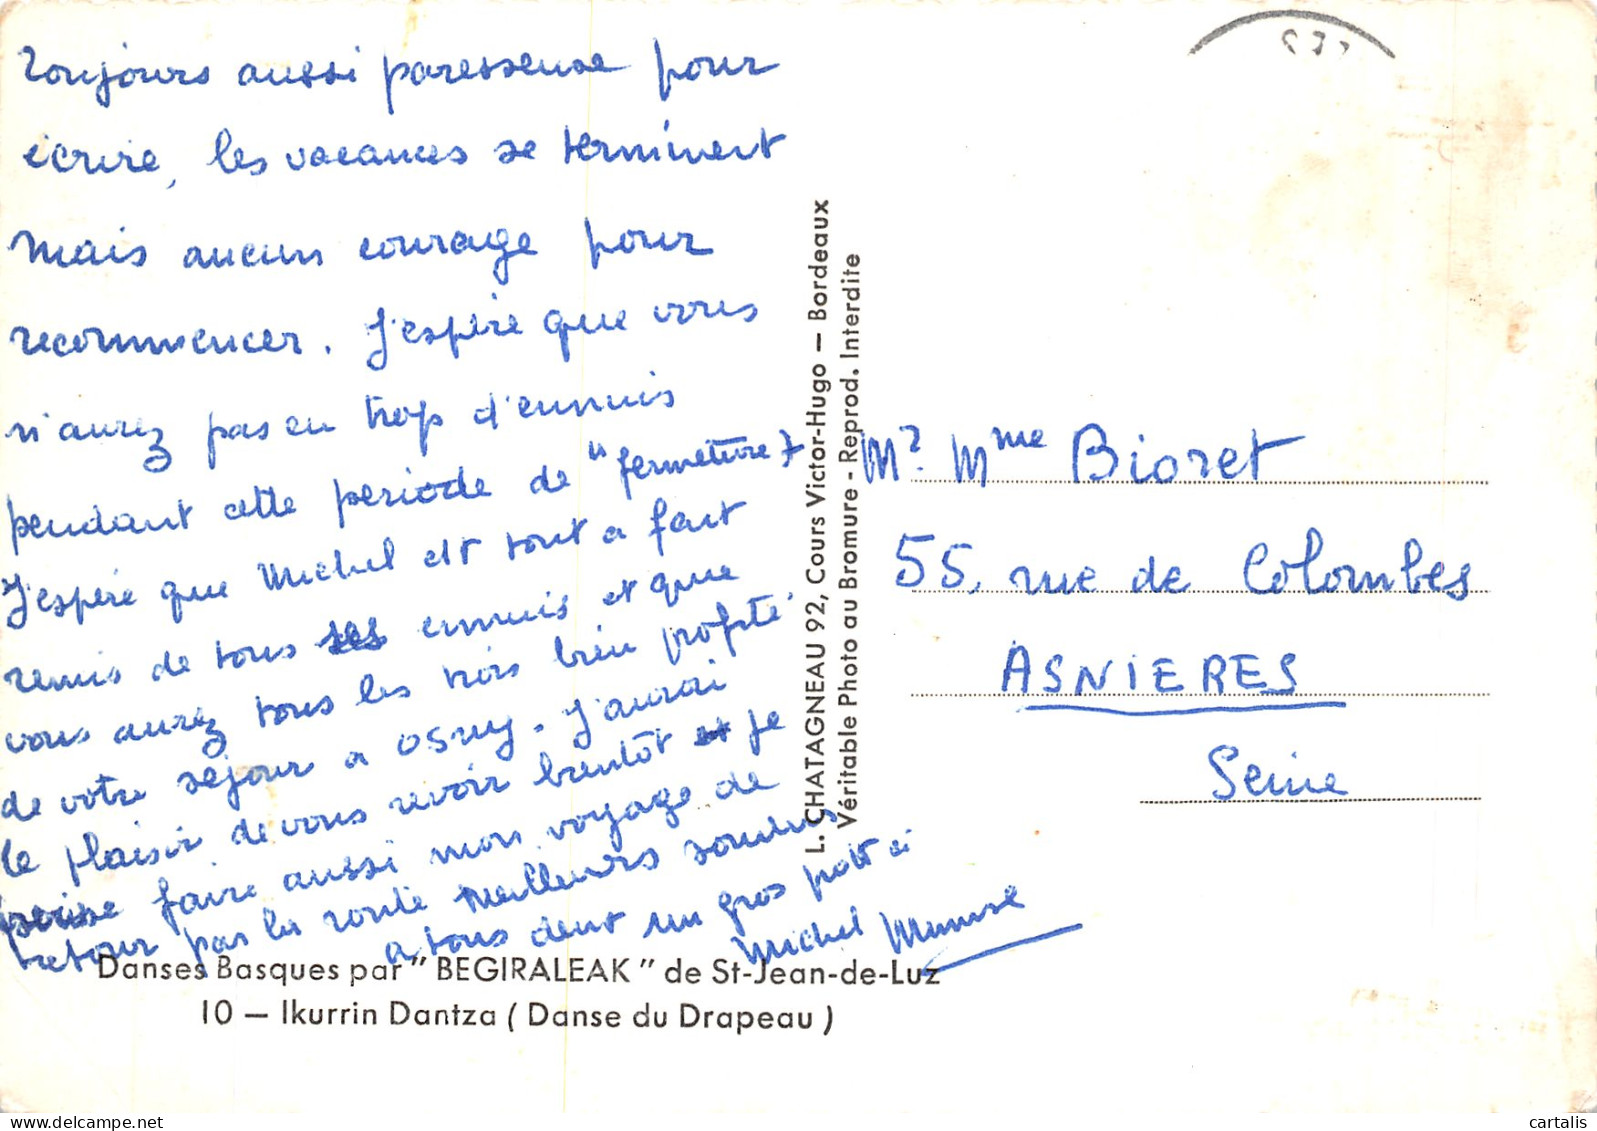 Toujours aussi paresseuse pour
écrire, les vacances se terminent
mais aucun courage pour
recommencer. J'espère que vous
n'aurez pas eu trop d'ennuis
pendant cette période de "fermeture".
J'espère que Michel est tout a fait
remis de tous ses ennuis et que
vous aurez tous les trois bien profité
de votre séjour a Osny. J'aurai
le plaisir de vous revoir bientôt et je
faire aussi mon voyage de
retour par la route Meilleurs souvenirs
a tous dont un gros pour
Michel
Danses Basques par "BEGIRALEAK" de St-Jean-de-Luz
10 — Ikurrin Dantza ( Danse du Drapeau )
L. CHATAGNEAU 92, Cours Victor-Hugo — Bordeaux
Véritable Photo au Bromure - Reprod. Interdite
Mr. Mme Bioret
55, rue de Colombes
ASNIERES
Seine
cartalis